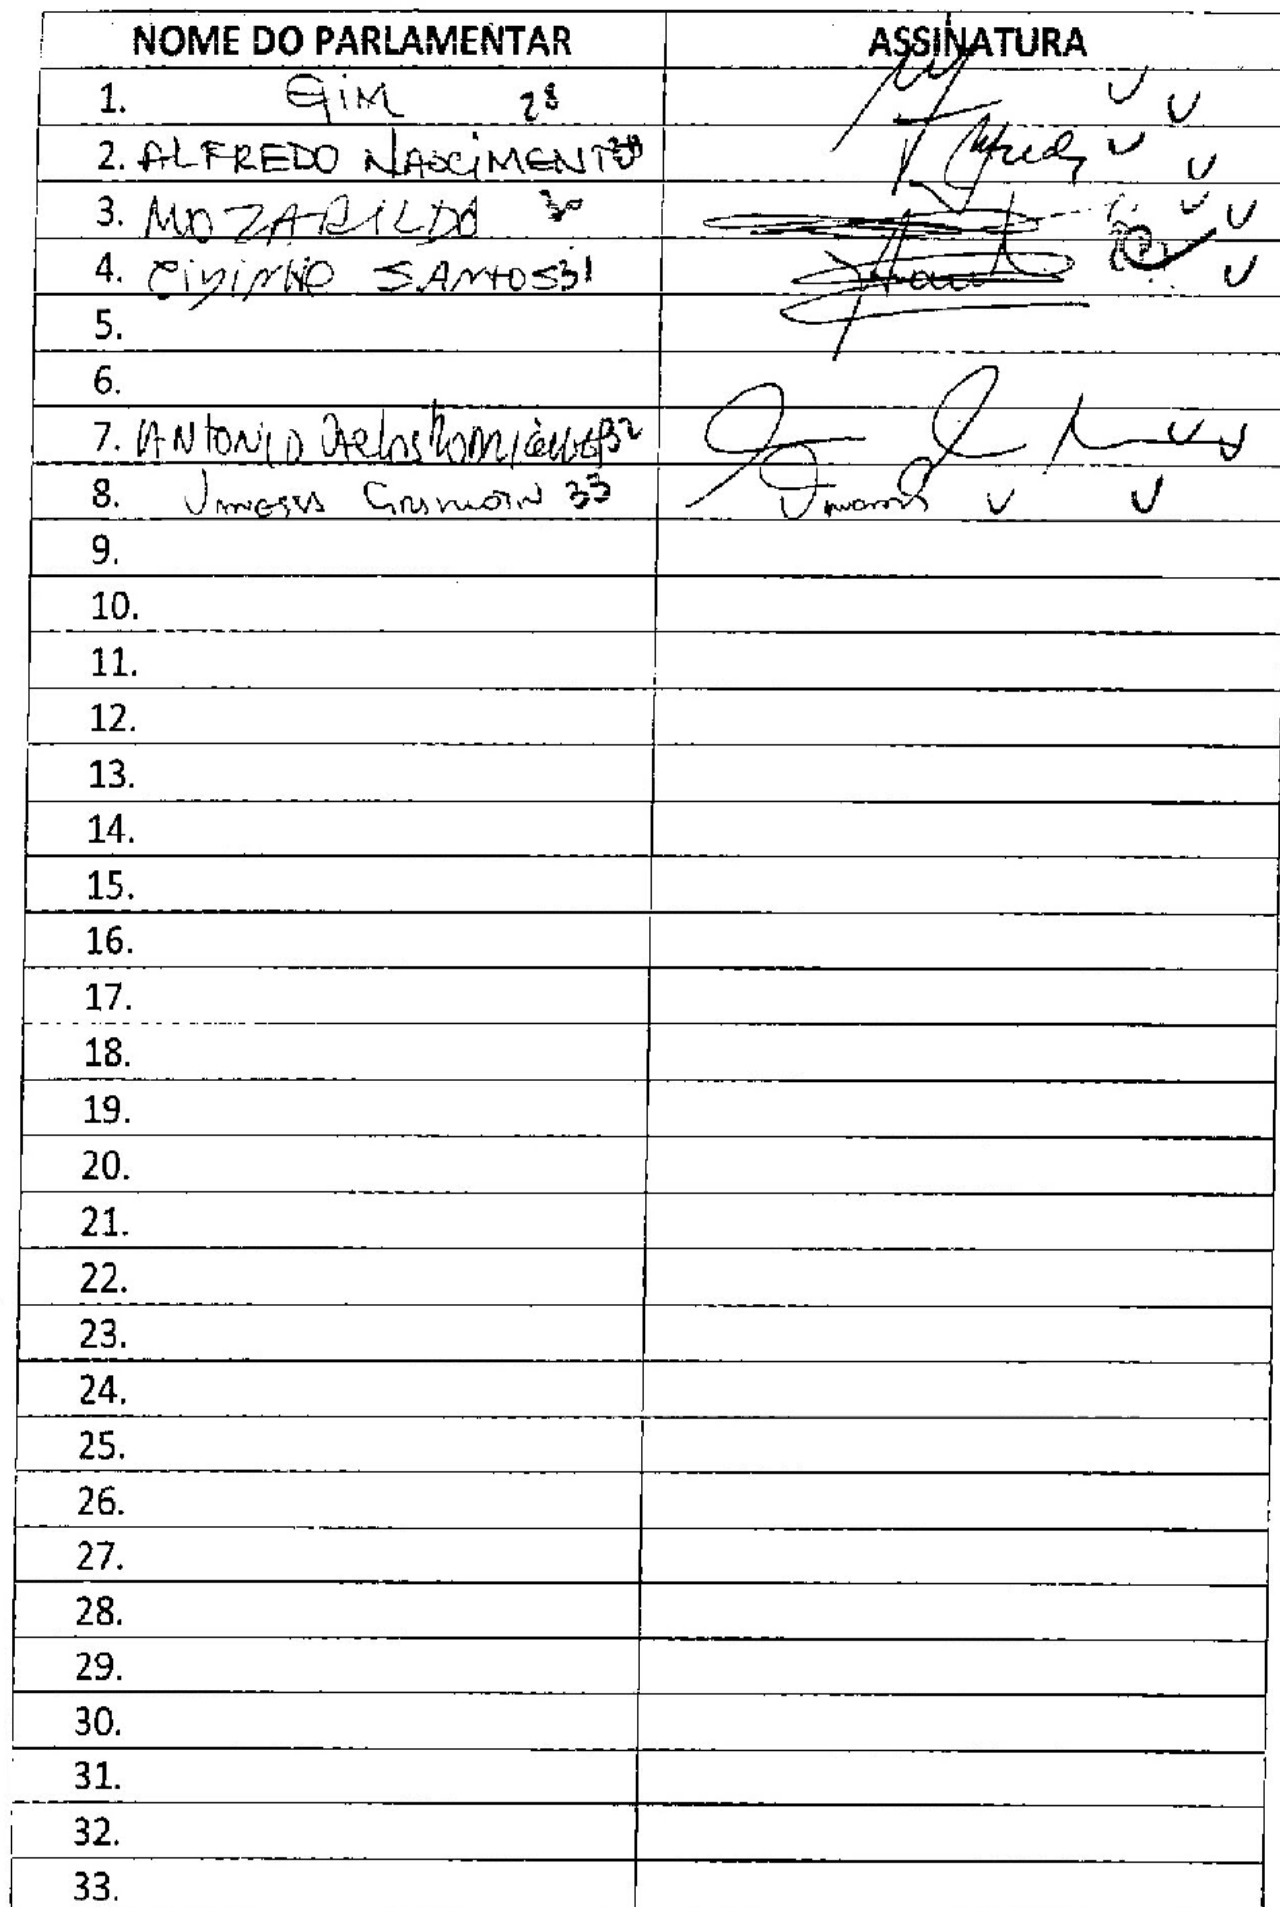 NOME DO PARLAMENTAR ASSINATURA
1. GIM 28
2. ALFREDO NASCIMENTO 29
3. MOZARILDO 30
4. CIDINHO SANTOS 31
5.
6.
7. ANTONIO CARLOS RODRIGUES 32
8. 33
9.
10.
11.
12.
13.
14.
15.
16.
17.
18.
19.
20.
21.
22.
23.
24.
25.
26.
27.
28.
29.
30.
31.
32.
33.